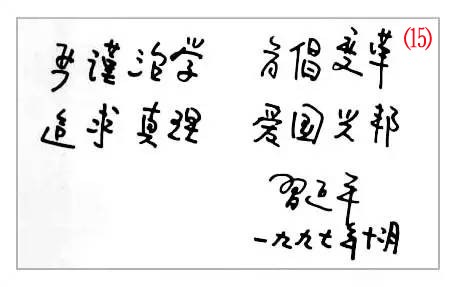 严谨治学 首倡变革 (15)
追求真理 爱国兴邦
習近平
一九九七年十月